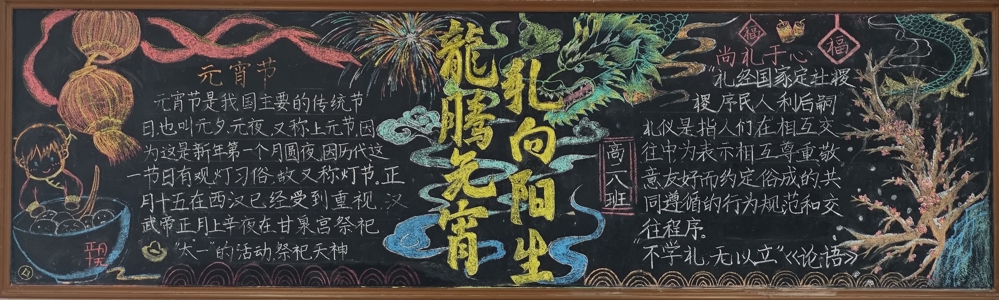 元宵节
元宵节是我国主要的传统节
日,也叫元夕、元夜,又称上元节,因
为这是新年第一个月圆夜,因历代这
一节日有观灯习俗,故又称灯节。正
月十五在西汉已经受到重视,汉
武帝正月上辛夜在甘泉宫祭祀
"太一"的活动,祭祀天神
龍腾元宵
礼向阳生
高一八班
福
福
尚礼于心
"礼,经国家,定社稷
稷,序民人,利后嗣
礼仪是指人们在相互交
往中为表示相互尊重,敬
意,友好而约定俗成的,共
同遵循的行为规范和交
往程序。
不学礼,无以立"《论语》